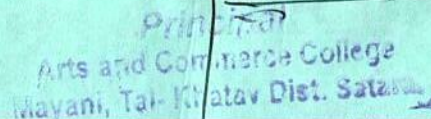 Principal
Arts and Commerce College
Mayani, Tal- Khatav Dist. Satara